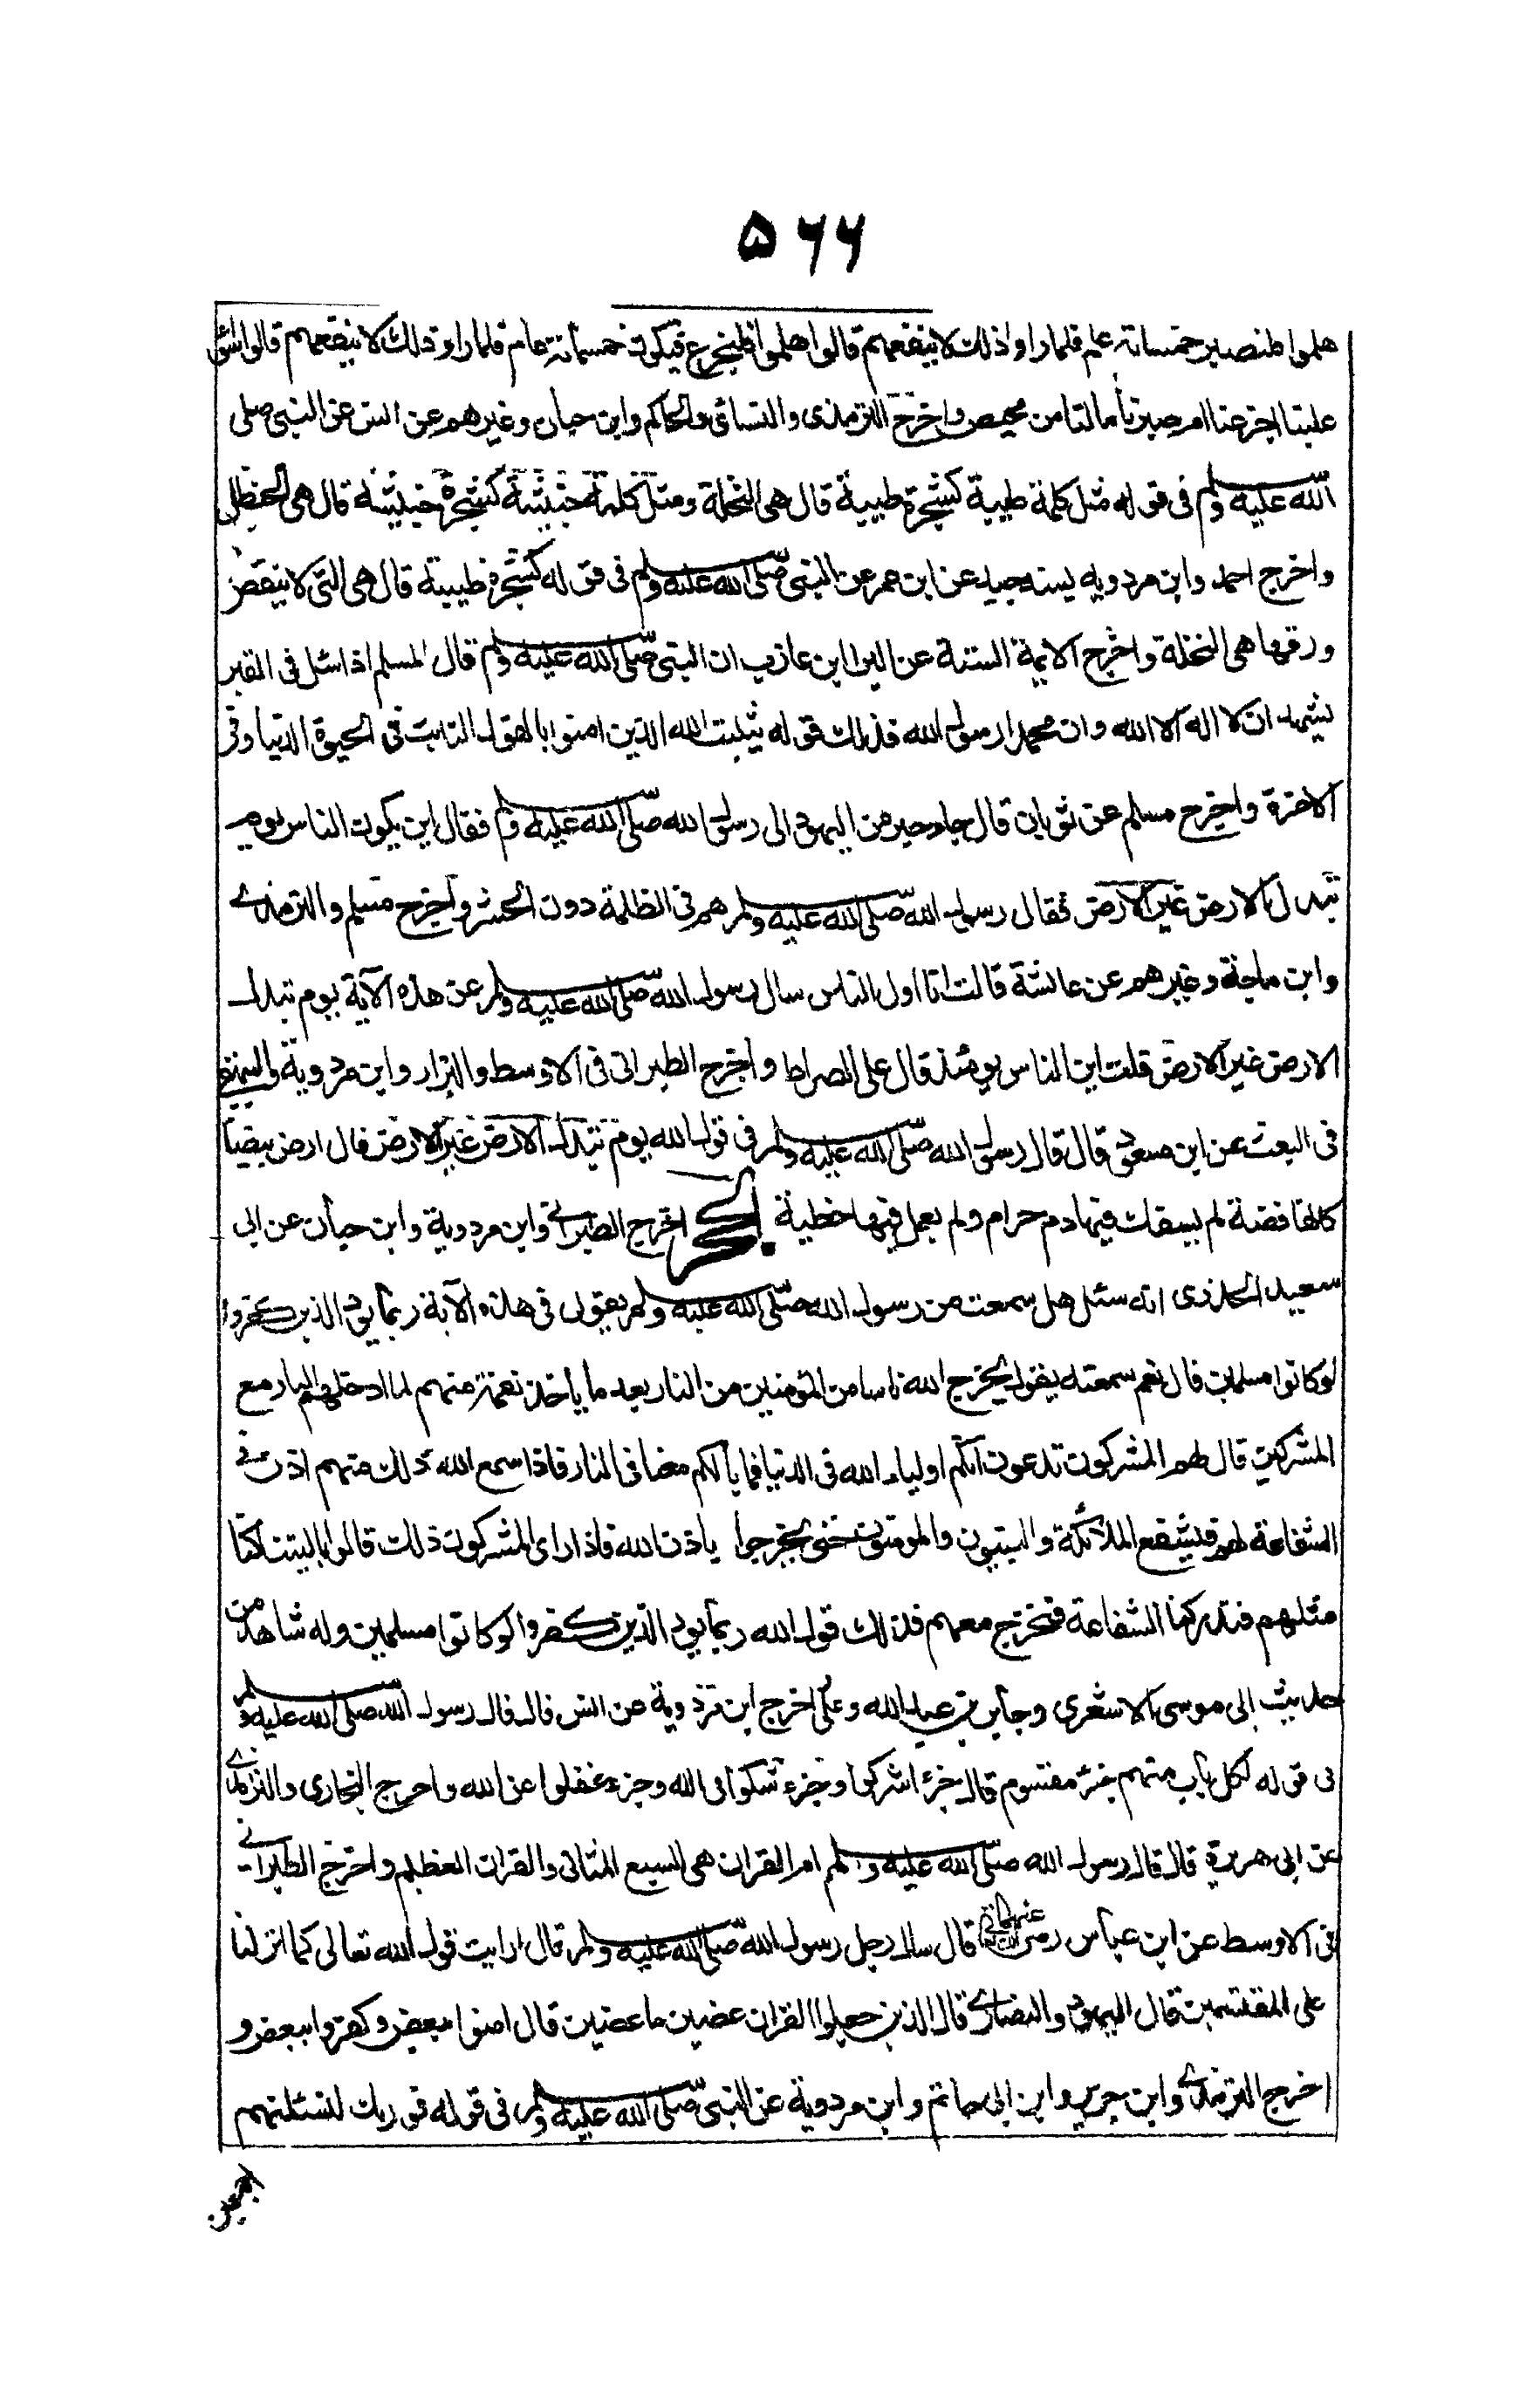 ۵۶۶
هلموا فلنصبر خمسمائة عام فلما راوا ذلك لا ينفعهم قالوا هلموا فلنجزع فيبكون خمسمائة عام فلما راو ذلك لا ينفعهم قالوا سواء
علينا اجزعنا ام صبرنا ما لنا من محيص واخرج الترمذى والنسائى والحاكم وابن حبان وغيرهم عن انس عن النبى صلى
الله عليه وسلم فى قوله مثل كلمة طيبة كشجرة طيبة قال هى النخلة ومثل كلمة خبيثة كشجرة خبيثة قال هى الحنظل
واخرج احمد وابن مردويه بسند جيد عن ابن عمر عن النبى صلى الله عليه وسلم فى قوله كشجرة طيبة قال هى التى لا ينقص
ورقها هى النخلة واخرج الائمة الستة عن البراء ابن عازب ان النبى صلى الله عليه وسلم قال المسلم اذا سئل فى القبر
يشهد ان لا اله الا الله وان محمدا رسول الله فذلك قوله يثبت الله الذين امنوا بالقول الثابت فى الحيوة الدنيا وفى
الاخرة واخرج مسلم عن ثوبان قال جاء حبر من اليهود الى رسول الله صلى الله عليه وسلم فقال اين يكون الناس يوم
تبدل الارض غير الارض فقال رسول الله صلى الله عليه وسلم هم فى الظلمة دون الحشر واخرج مسلم والترمذى
وابن ماجة وغيرهم عن عائشة قالت انا اول الناس سال رسول الله صلى الله عليه وسلم عن هذه الآية يوم تبدل
الارض غير الارض قلت اين الناس يومئذ قال على الصراط واخرج الطبرانى فى الاوسط والبزار وابن مردوية والبيهقى
فى البعث عن ابن مسعود قال قال رسول الله صلى الله عليه وسلم فى قول الله يوم تبدل الارض غير الارض قال ارض بيضا
كانها فضة لم يسفك فيها دم حرام ولم يعمل فيها خطية الحجر اخرج الطبرانى وابن مردوية وابن حبان عن ابى
سعيد الخذرى انه سئل هل سمعت من رسول الله صلى الله عليه وسلم يقول فى هذه الآية ربما يود الذين كفروا
لو كانوا مسلمين قال نعم سمعته يقول يخرج الله ناسا من المؤمنين من النار بعد ما ياخذ نقمته منهم لما ادخلهم النار مع
المشركين قال لهم المشركون تدعون انكم اولياء الله فى الدنيا فما بالكم معنا فى النار فاذا سمع الله ذلك منهم اذن فى
الشفاعة لهم فيشفع الملائكة والنبيون والمومنون حتى يخرجوا باذن الله فاذا راى المشركون ذلك قالوا ياليتنا كنا
مثلهم فتدركنا الشفاعة فنخرج معهم فذلك قول الله ربما يود الذين كفروا لو كانوا مسلمين وله شاهد من
حديث ابى موسى الاشعرى وجابر بن عبد الله وعلى اخرج ابن مردوية عن انس قال قال رسول الله صلى الله عليه وسلم
فى قوله لكل باب منهم جزء مقسوم قال جزء اشركوا وجزء شكوا فى الله وجزء غفلوا عن الله واخرج البخارى والترمذى
عن ابى هريرة قال قال رسول الله صلى الله عليه وسلم ام القران هى السبع المثانى والقران العظيم واخرج الطبرانى
فى الاوسط عن ابن عباس رضى الله عنهما قال سال رجل رسول الله صلى الله عليه وسلم قال ارايت قول الله تعالى كما انزلنا
على المقتسمين قال اليهود والنصارى قال الذين جعلوا القران عضين ما عضين قال امنوا ببعض وكفروا ببعض و
اخرج الترمذى وابن جرير وابن ابى حاتم وابن مردوية عن النبى صلى الله عليه وسلم فى قوله فوربك لنسئلنهم
اجمعين